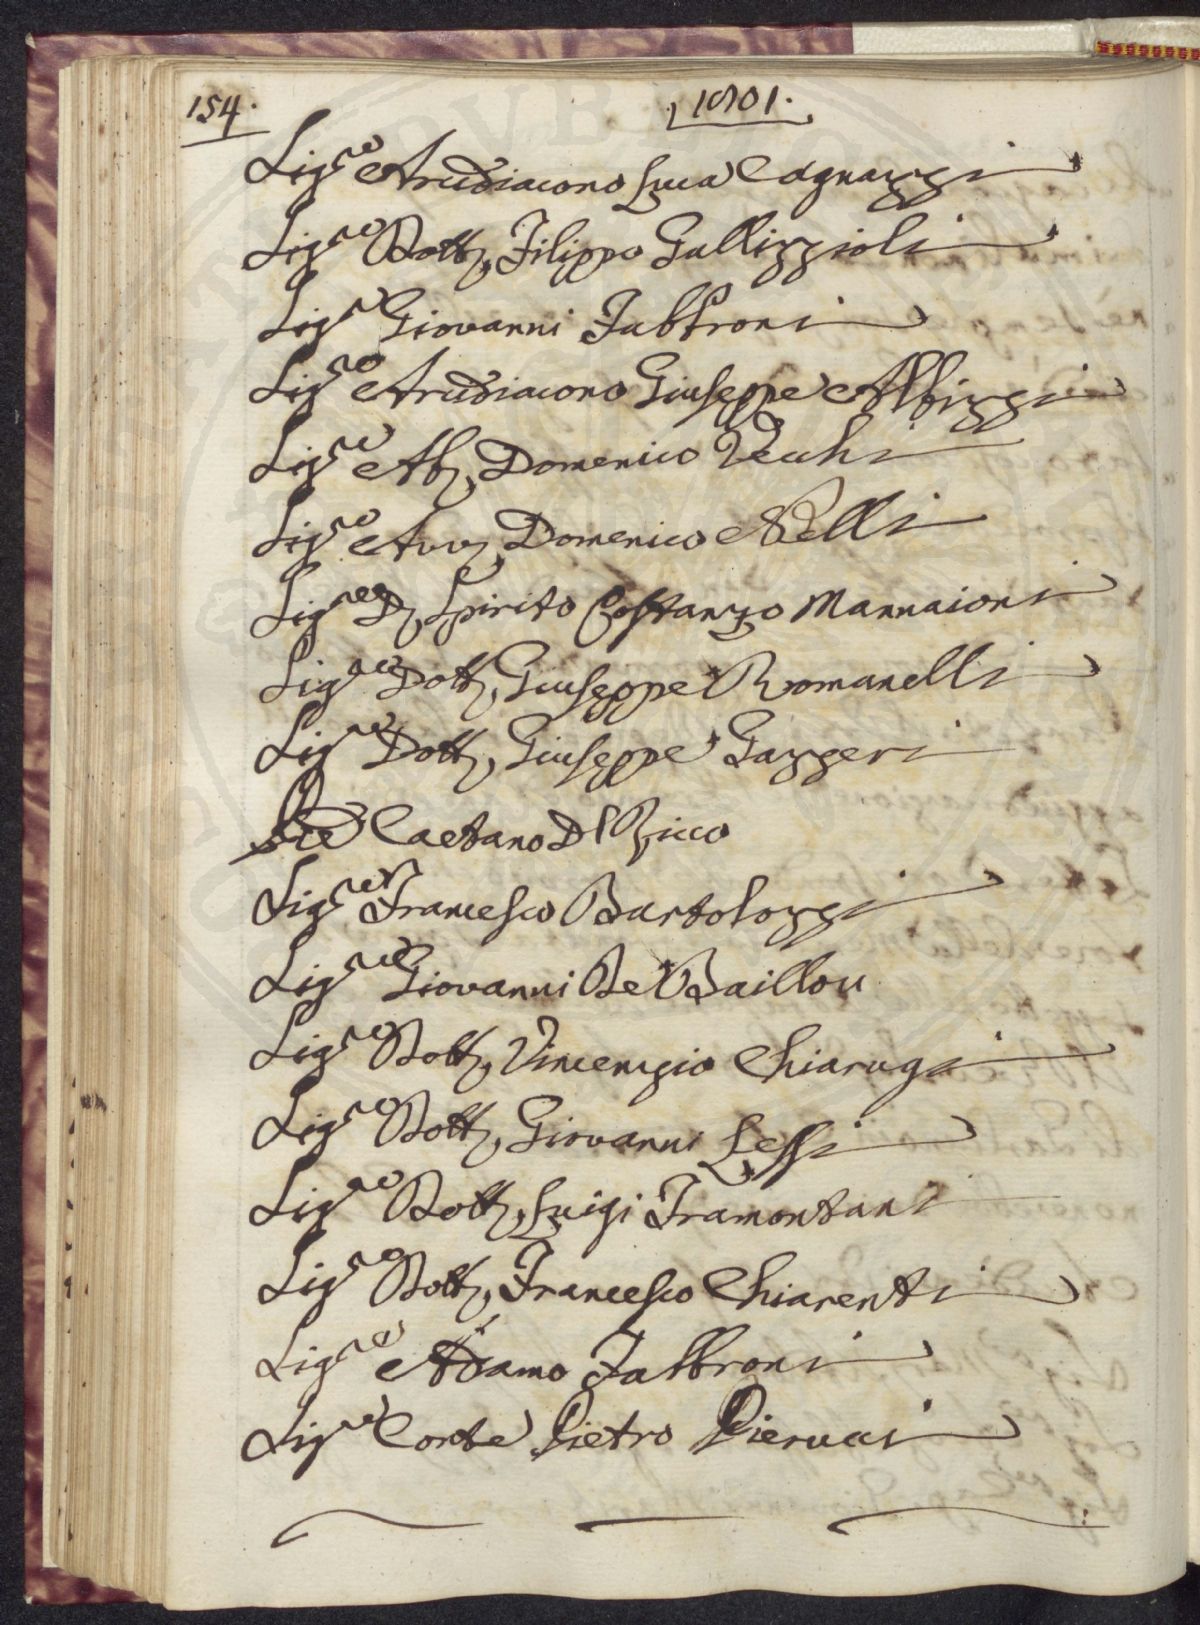 154.
1801.
Sig.re Arcidiacono Luca Cagnazzi
Sig.re Dott. Filippo Gallizzioli
Sig.re Giovanni Fabbroni
Sig.re Arcidiacono Giuseppe Albizzi
Sig.re Ab. Domenico Vecchi
Sig.re Avv. Domenico Nelli
Sig.re D. Spirito Costanzo Mannaioni
Sig.re Dott. Giuseppe Romanelli
Sig.re Dott. Giuseppe Gazzeri
Pre Gaetano Del Ricco
Sig.re Francesco Bartolozzi
Sig.re Giovanni De Baillou
Sig.re Dott. Vincenzio Chiarugi
Sig.re Dott. Giovanni Lessi
Sig.re Dott. Luigi Tramontani
Sig.re Dott. Francesco Chiarenti
Sig.re Adamo Fabbroni
Sig.re Conte Pietro Pierucci